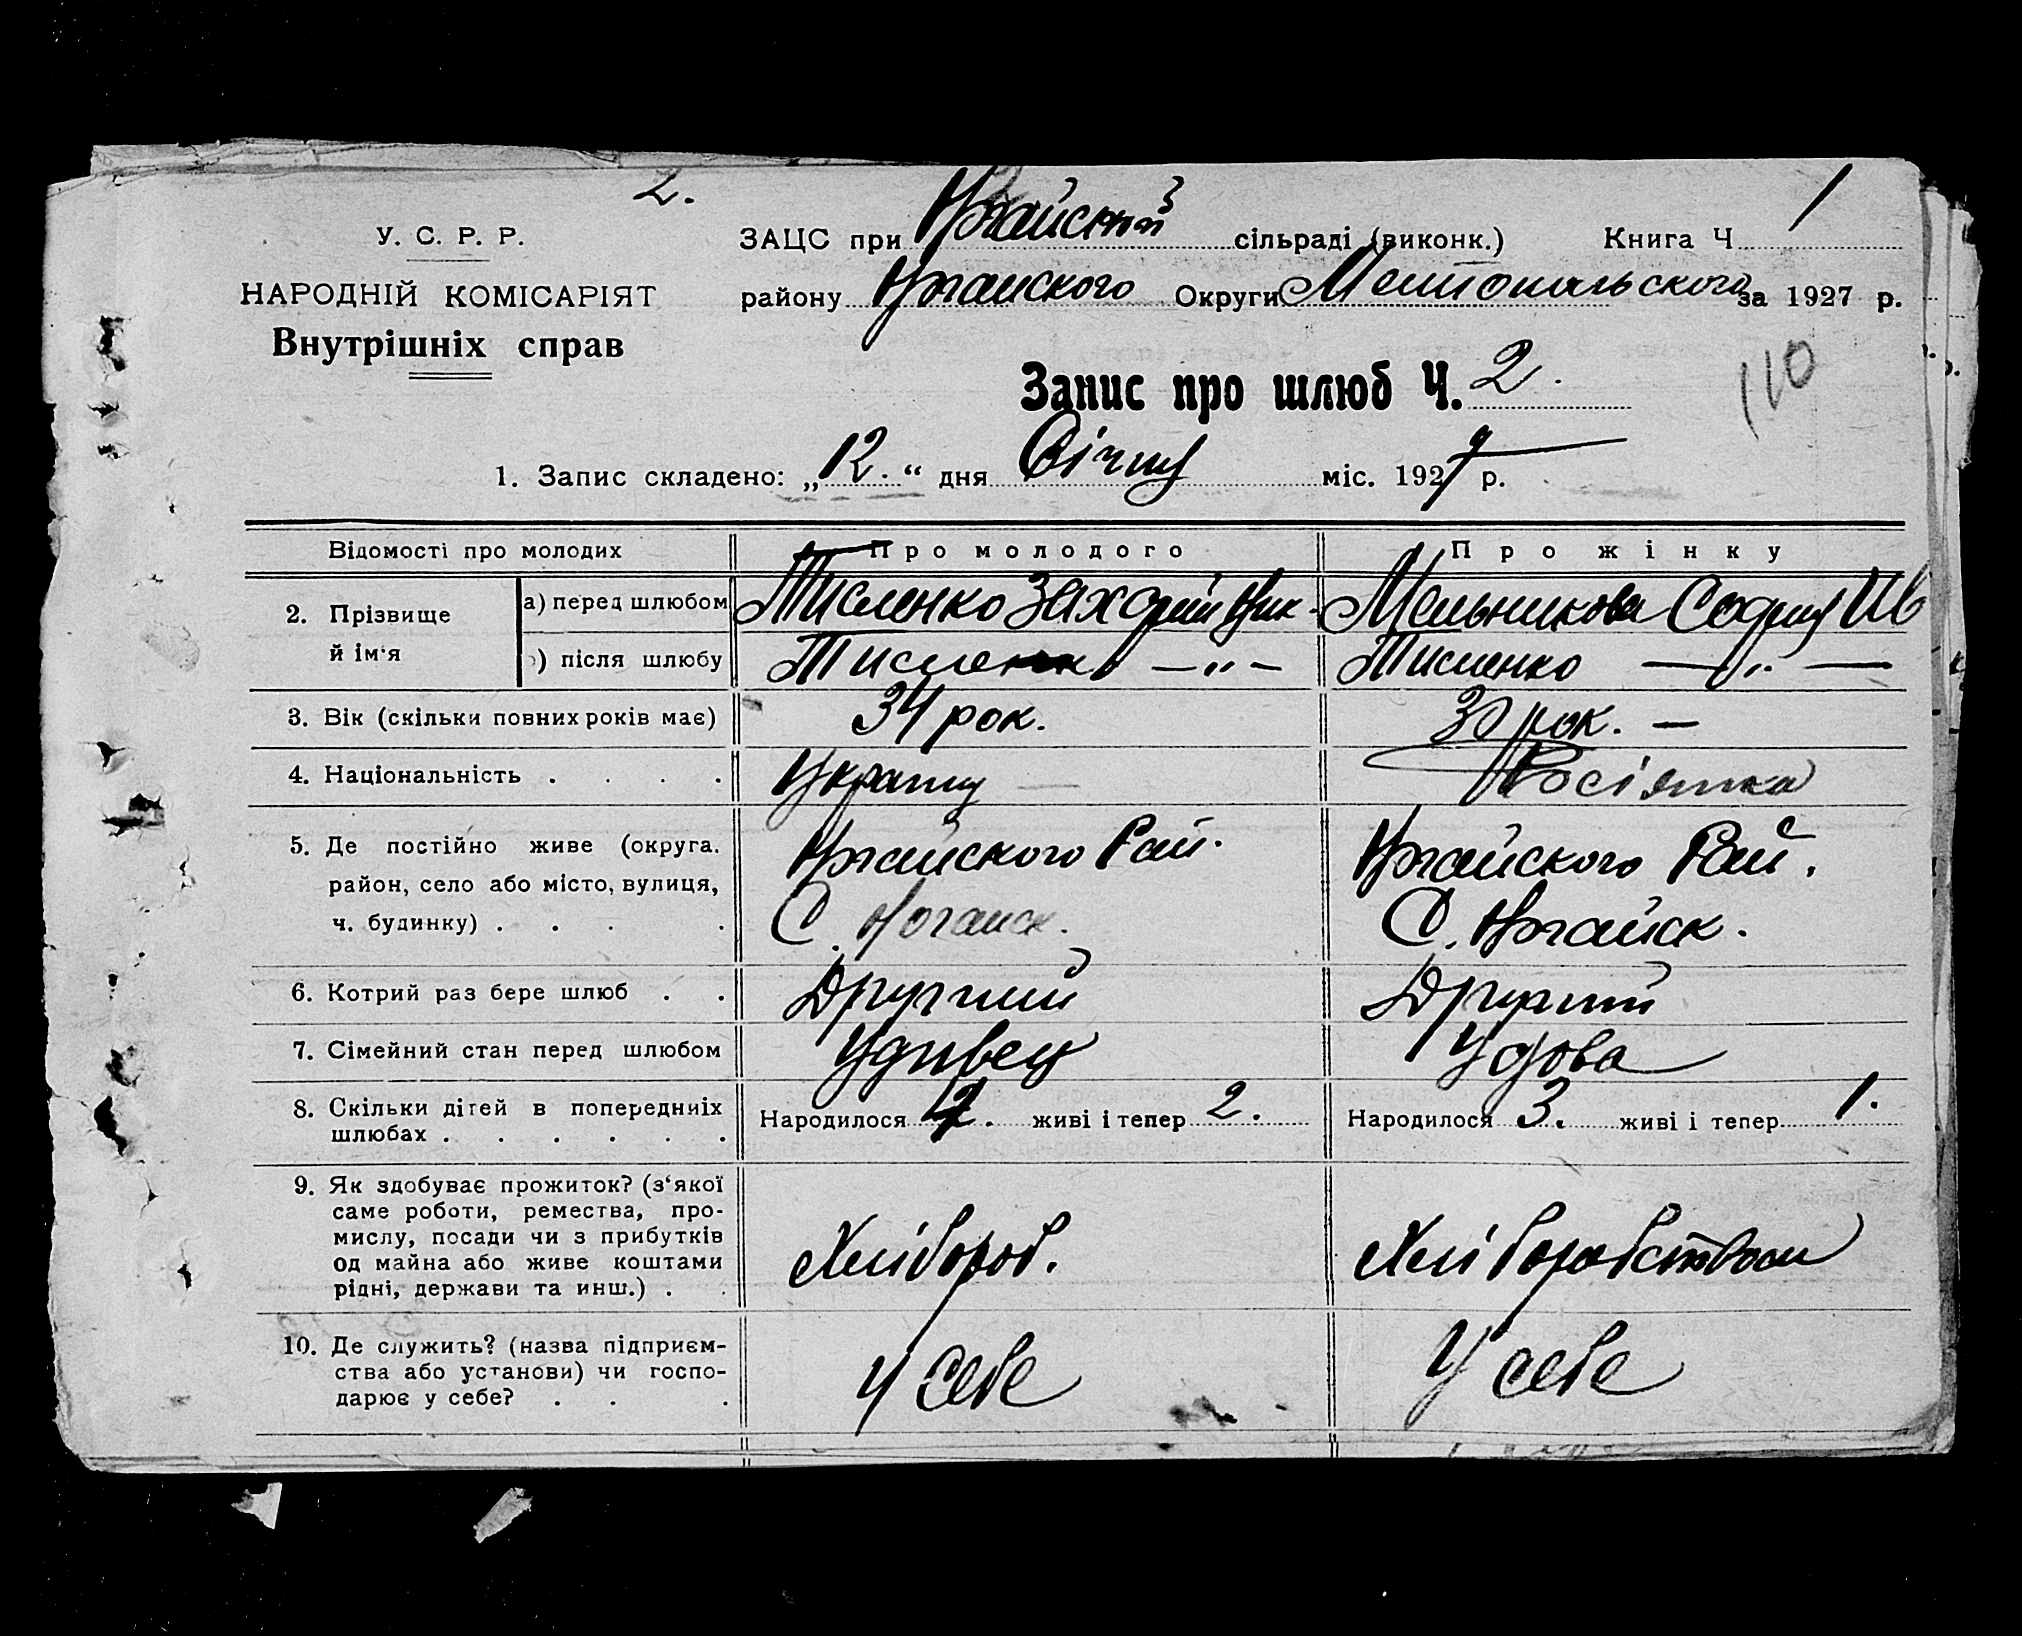 2.
У. С. Р. Р.
НАРОДНІЙ КОМІСАРІЯТ
Внутрішніх справ
ЗАЦС при Ногайській сільраді (виконк.) Книга Ч 1
району Ногайского Округи Мелітопольского за 1927 р.
Запис про шлюб Ч. 2.
110
1. Запис складено: „12.“ дня Січня міс. 1927 р.
Відомості про молодих Про молодого Про жінку
2. Прізвище й ім‘я
а) перед шлюбом Тисленко Захарій Ник. Мельникова София Ив
б) після шлюбу Тисленко —„— Тисленко —„—
3. Вік (скільки повних років має) 34 рок. 30 рок. —
4. Національність . . . . Україн Росіянка
5. Де постійно живе (округа, район, село або місто, вулиця, ч. будинку) . . . .
Ногайского Рай.
С. Ногайск.
Ногайского Рай.
С. Ногайск.
6. Котрий раз бере шлюб . . Другий Другий
7. Сімейний стан перед шлюбом Удивец Удова
8. Скільки дітей в попередніх шлюбах . . . . . .
Народилося живі і тепер 2. Народилося 3. живі і тепер 1.
9. Як здобуває прожиток? (з‘якої
саме роботи, ремества, про-
мислу, посади чи з прибутків
од майна або живе коштами
рідні, держави та инш.) . .
Хлібороб. Хліборобством
10. Де служить? (назва підприєм-
ства або установи) чи госпо-
дарює у себе? . . .
У себе У себе